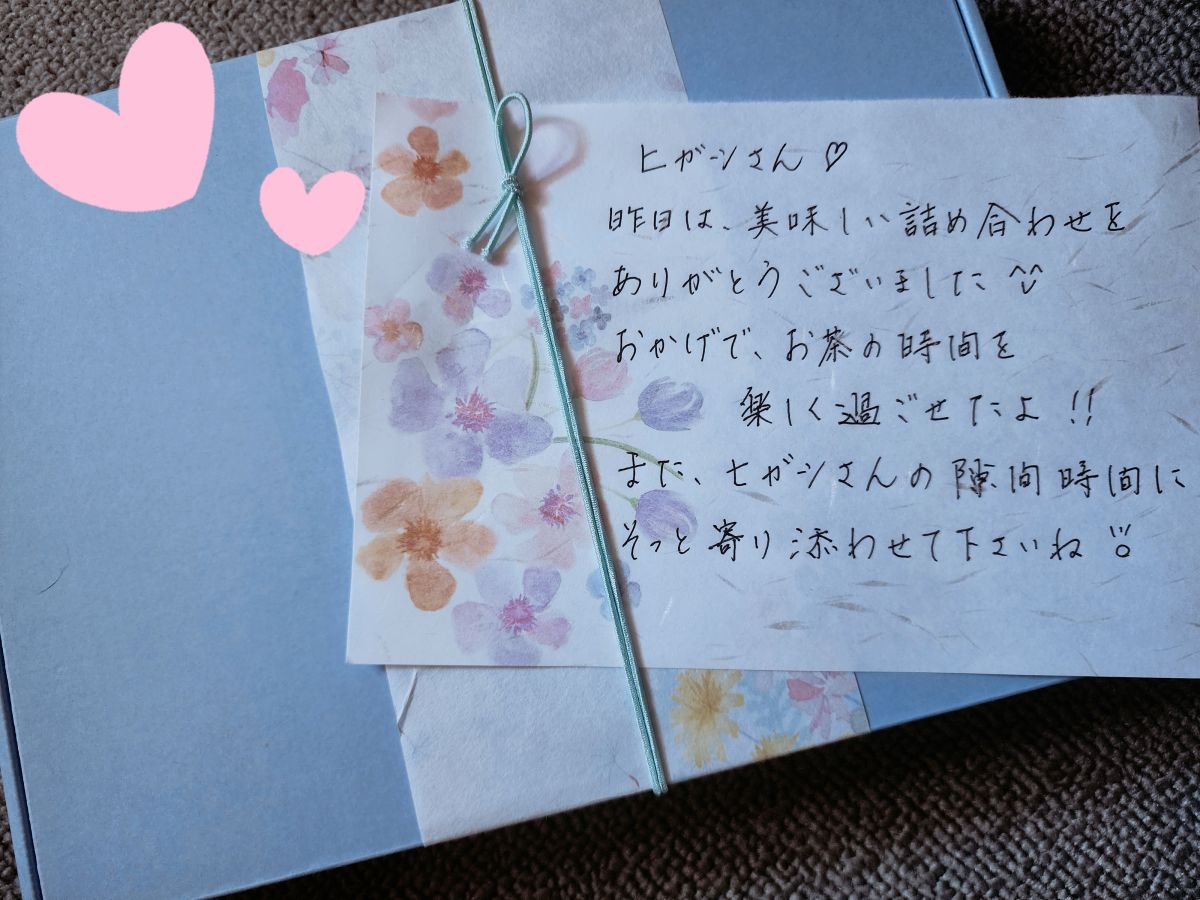 ヒガーシさん♡
昨日は、美味しい詰め合わせを
ありがとうございました^^
おかげで、お茶の時間を
楽しく過ごせたよ!!
また、ヒガーシさんの隙間時間に
そっと寄り添わせて下さいね